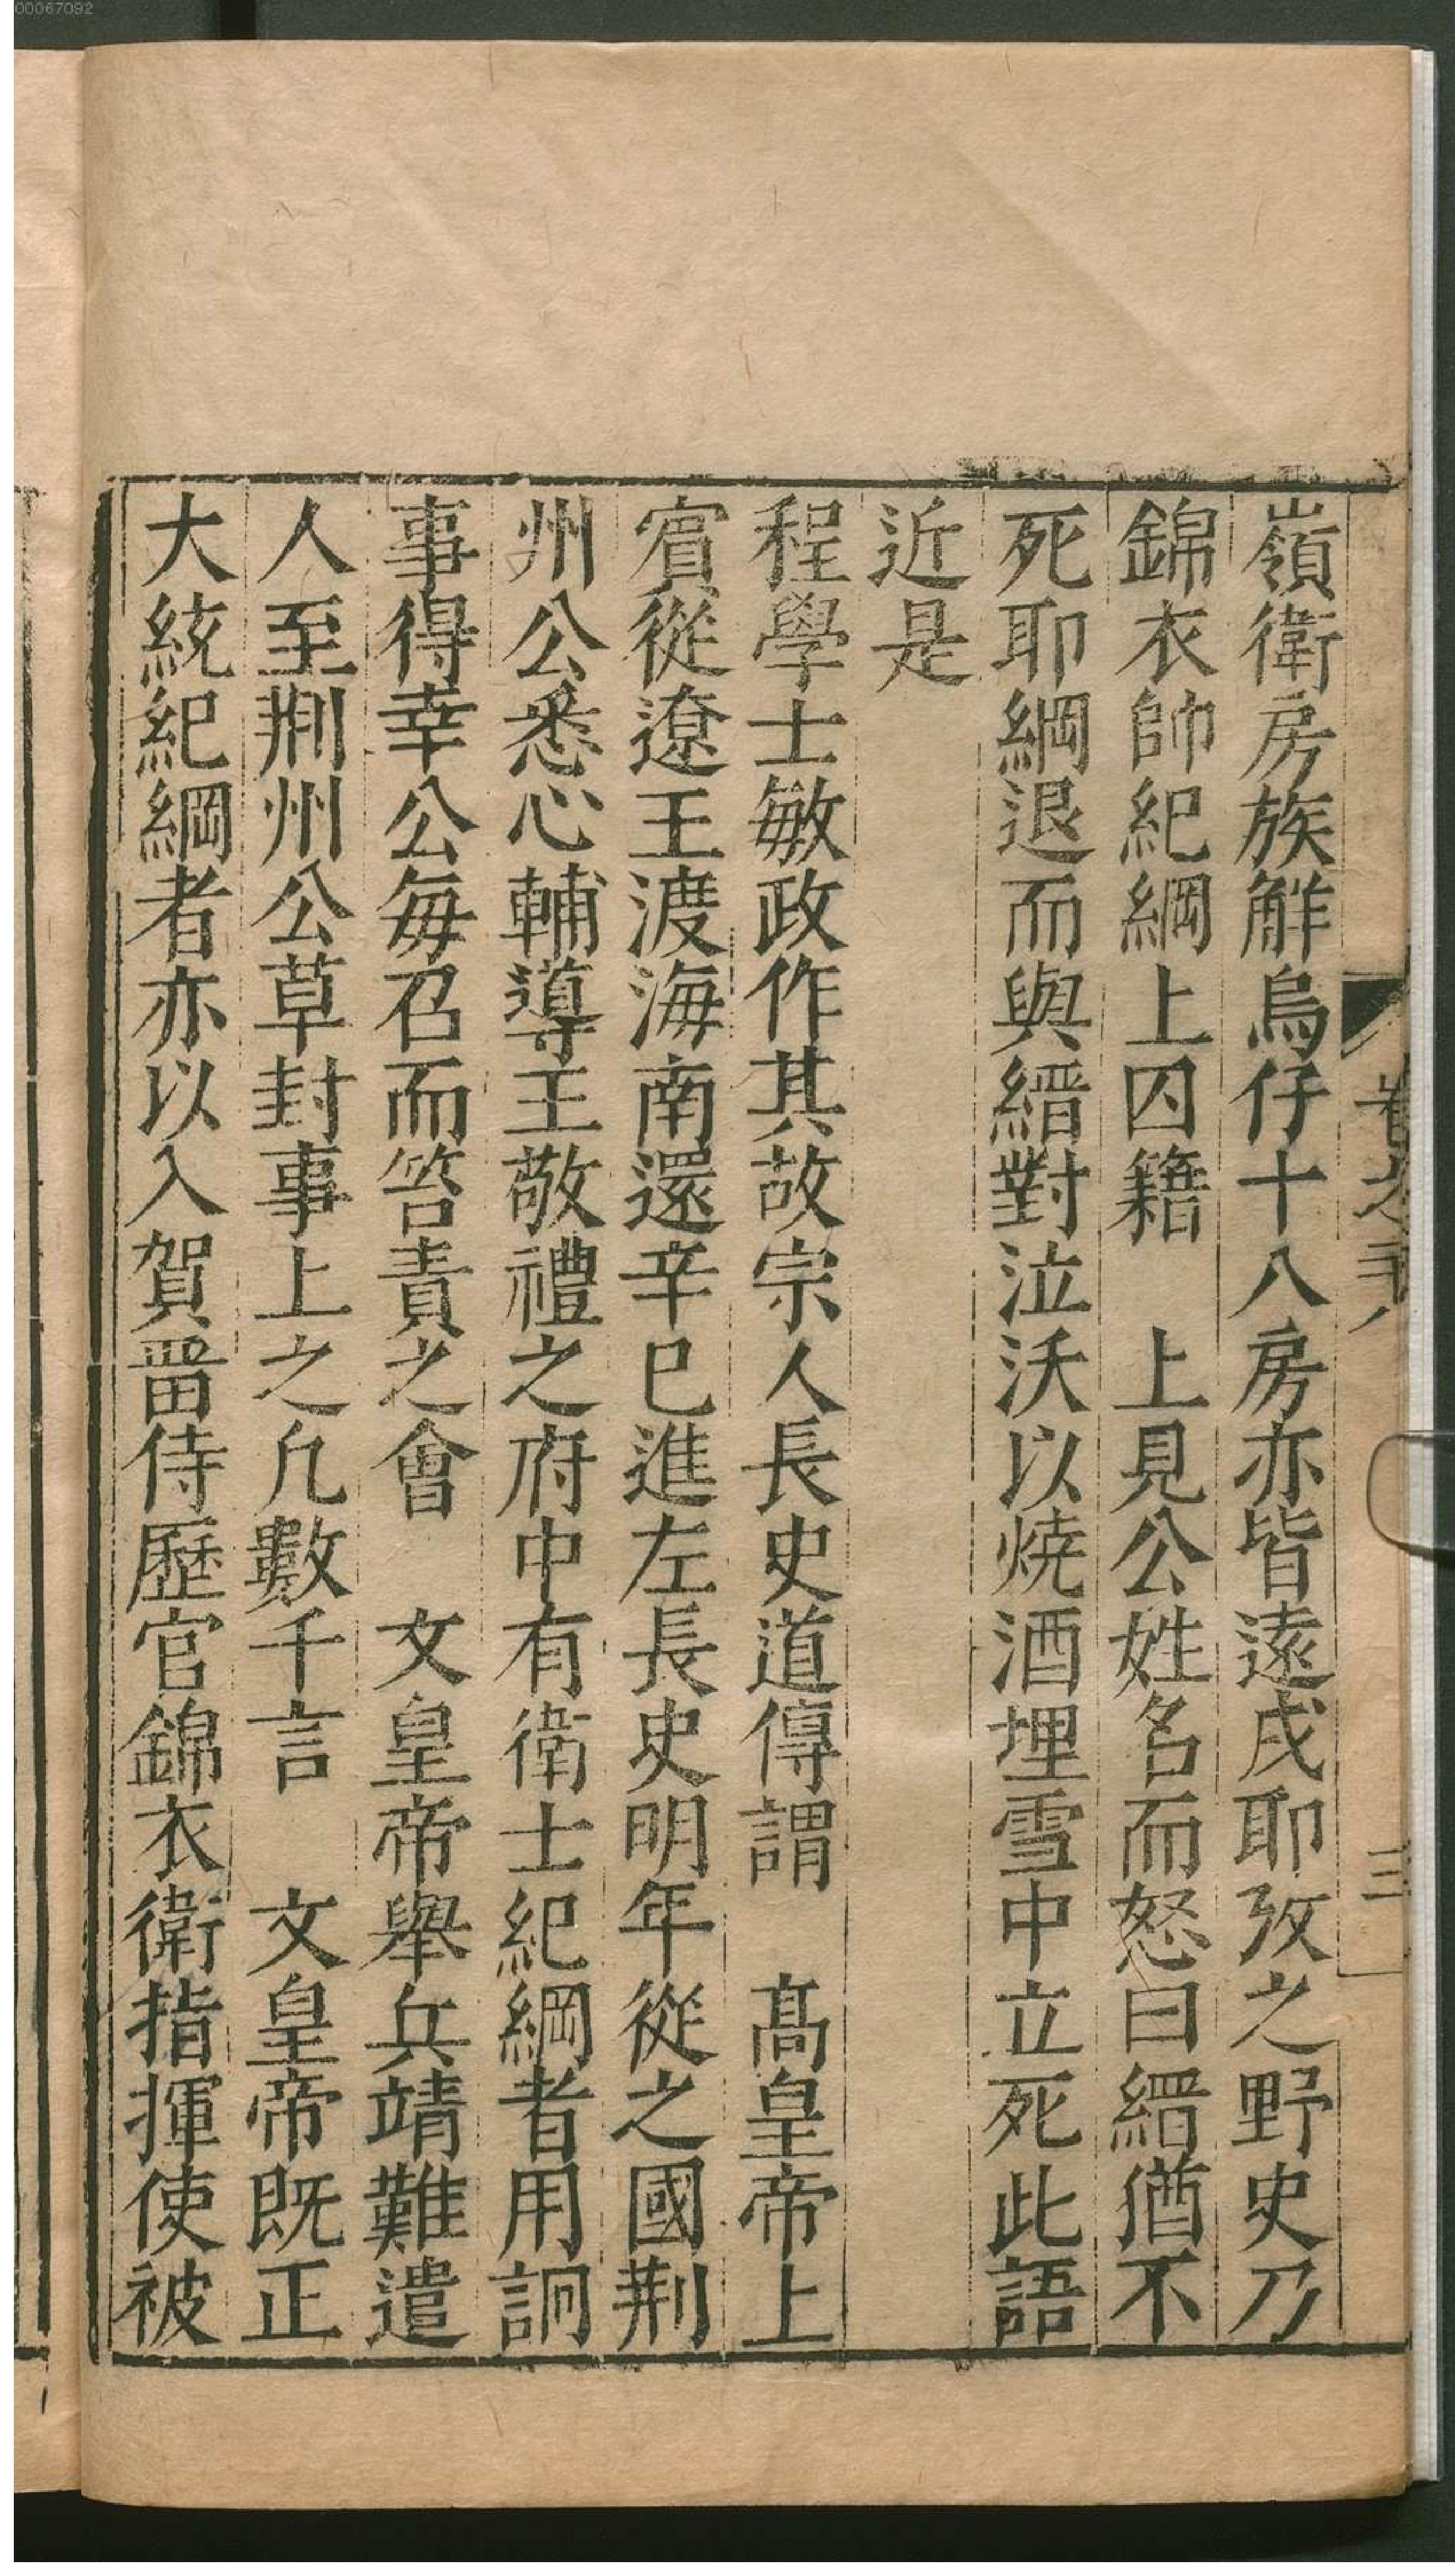 00067092
嶺衛房族觧烏仔十八房亦皆遠戍耶攷之野史乃
錦衣帥紀綱上囚籍　上見公姓名而怒曰縉猶不
死耶綱退而與縉對泣沃以燒酒埋雪中立死此語
近是
程學士敏政作其故宗人長史道傳謂　髙皇帝上
賔從遼王渡海南還辛巳進左長史明年從之國荆
州公悉心輔導王敬禮之府中有衛士紀綱者用詗
事得幸公每召而笞責之會　文皇帝舉兵靖難遣
人至荆州公草封事上之凢數千言　文皇帝既正
大統紀綱者亦以入賀畱侍歷官錦衣衛指揮使被
三